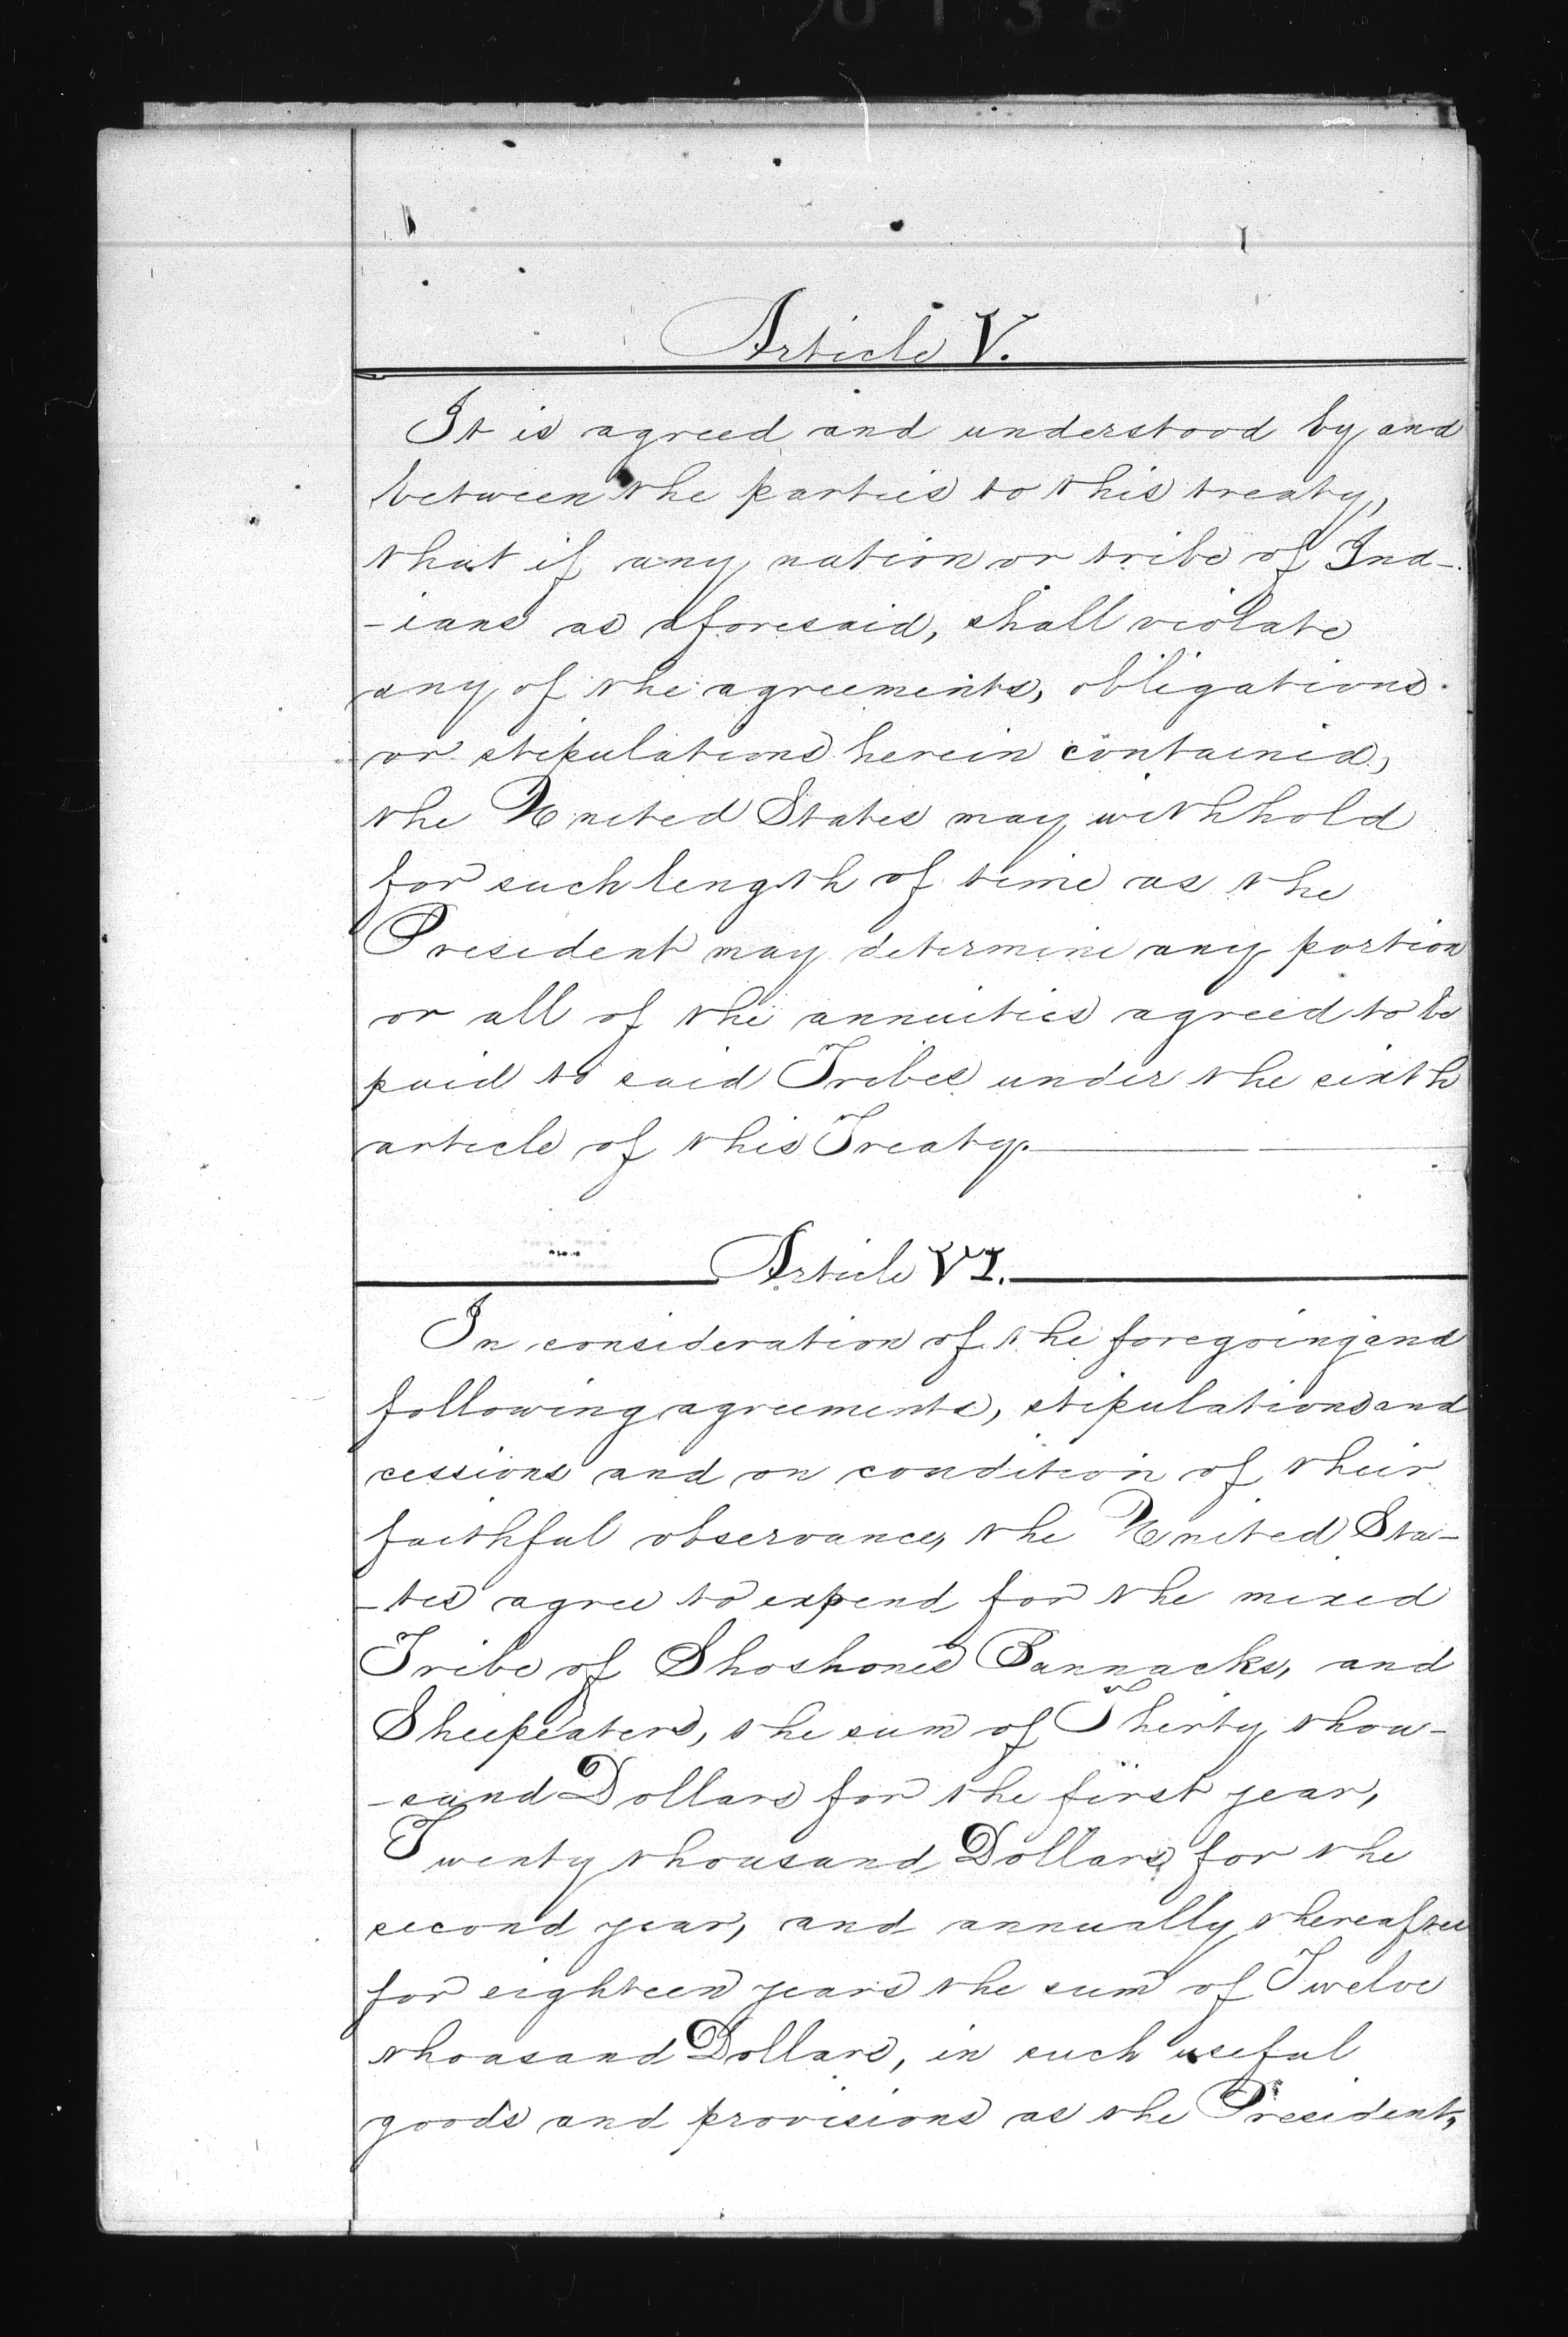 Article V.
It is agreed and understood by and
between the parties to this treaty,
that if any nation or tribe of Ind-
-ians as aforesaid, shall violate
any of the agreements, obligations
or stipulations herein contained,
the United States may withhold
for such length of time as the
President may determine any portion
or all of the annuities agreed to be
paid to said Tribes under the sixth
article of this Treaty.
Article VI.
In consideration of the foregoing and
following agreements, stipulations and
cessions and on condition of their
faithful observance, the United Sta-
-tes agree to expend for the mixed
Tribe of Shoshones Bannacks, and
Sheepeaters, the sum of Thirty thou-
-sand Dollars for the first year,
Twenty thousand Dollars for the
second year, and annually thereafter
for eighteen years the sum of Twelve
thousand Dollars, in such useful
goods and provisions as the President,